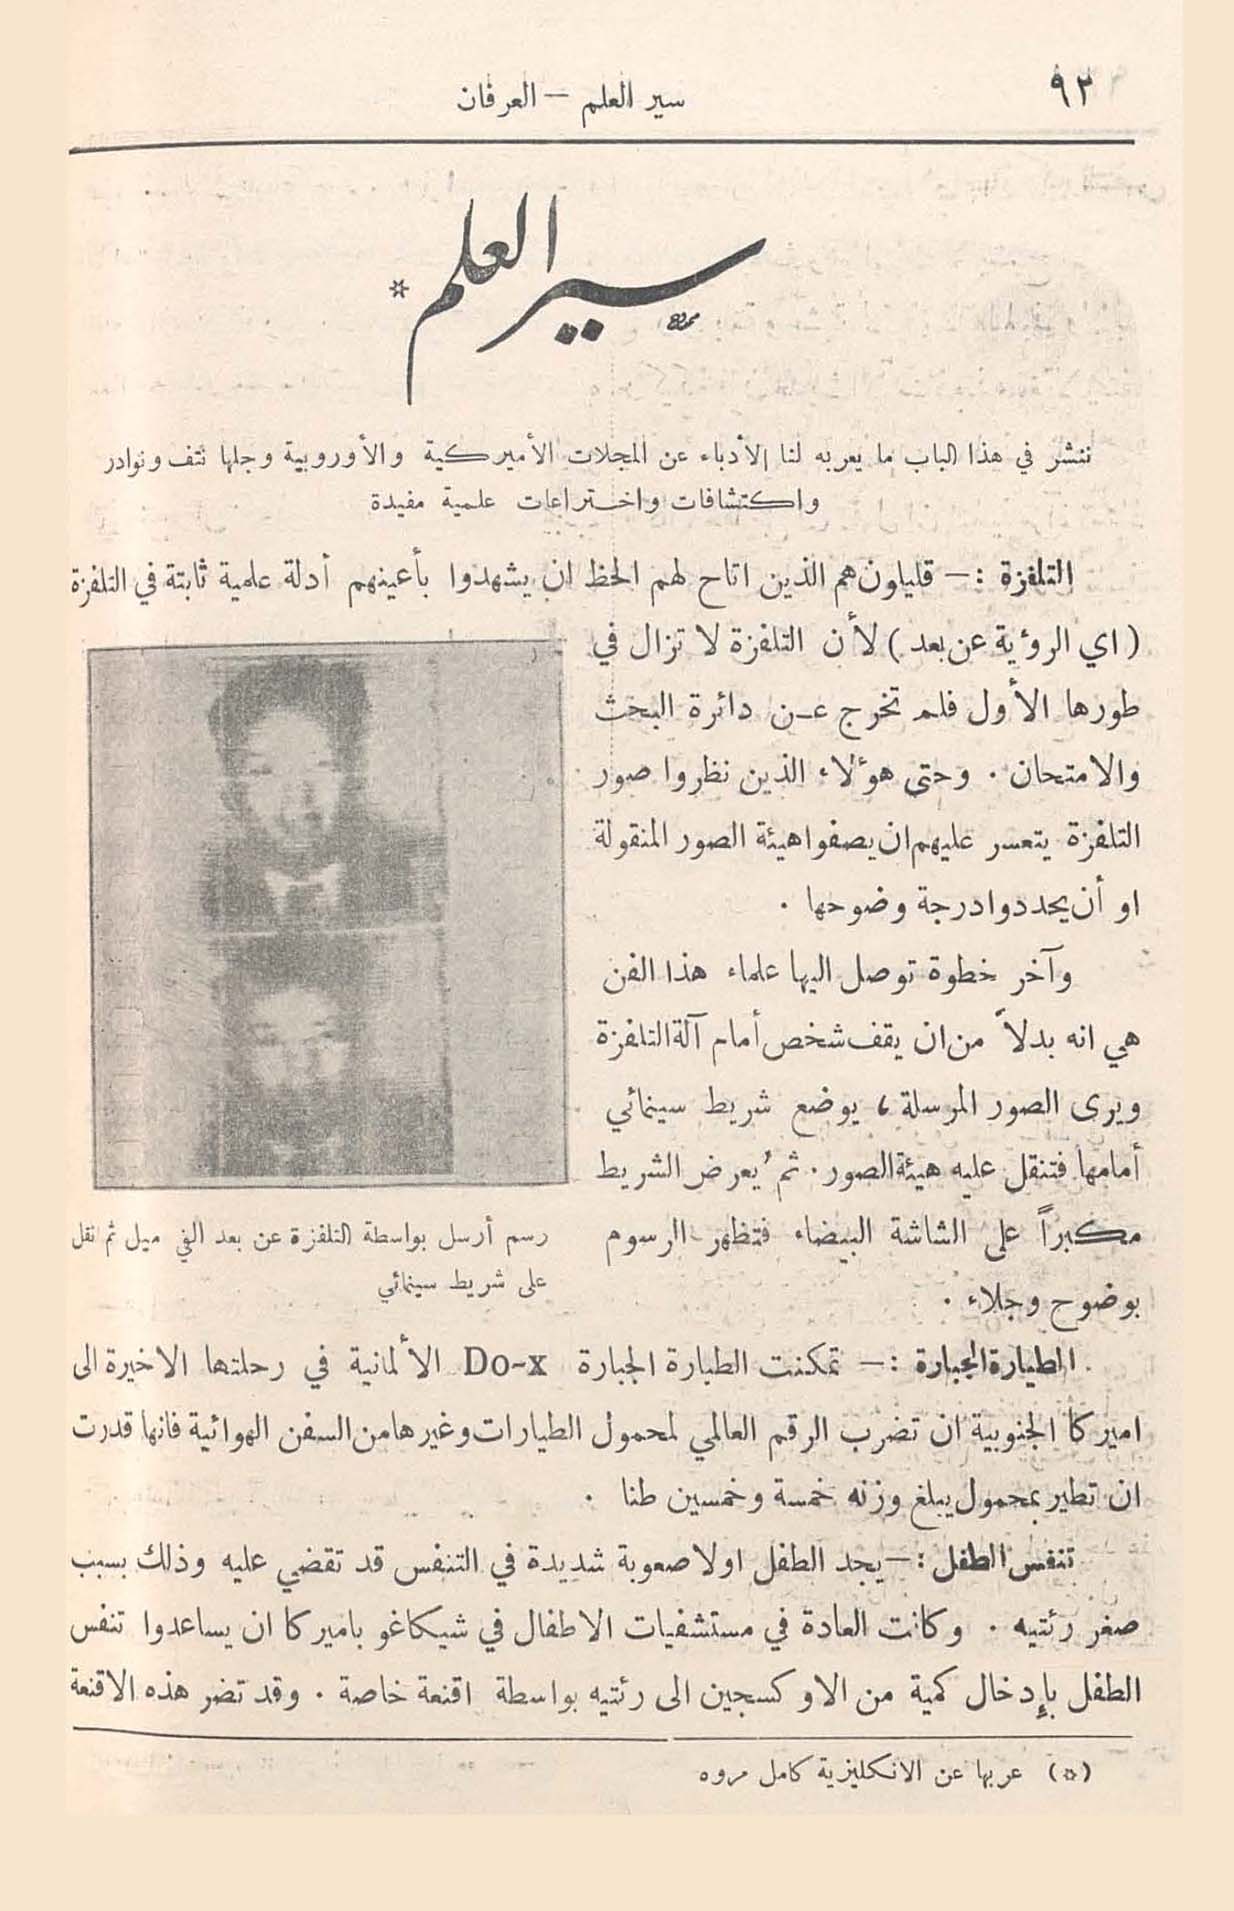 ٩٢
سير العلم — العرفان
سير العلم *
ننشر في هذا الباب ما يعربه لنا الأدباء عن المجلات الأميركية والأوروبية وجلها نتف ونوادر
واكتشافات واختراعات علمية مفيدة
التلفزة :— قليلون هم الذين اتاح لهم الحظ ان يشهدوا بأعينهم أدلة علمية ثابتة في التلفزة
( اي الرؤية عن بعد ) لأن التلفزة لا تزال في
طورها الأول فلم تخرج عن دائرة البحث
والامتحان . وحتى هؤلاء الذين نظروا صور
التلفزة يتعسر عليهم ان يصفوا هيئة الصور المنقولة
او أن يحددوا درجة وضوحها .
وآخر خطوة توصل اليها علماء هذا الفن
هي انه بدلاً من ان يقف شخص أمام آلة التلفزة
ويرى الصور المرسلة ، يوضع شريط سينمائي
أمامها فتنقل عليه هيئة الصور . ثم يُعرض الشريط
مكبراً على الشاشة البيضاء فتظهر الرسوم
بوضوح وجلاء .
رسم أرسل بواسطة التلفزة عن بعد الفي ميل ثم نقل
على شريط سينمائي
الطيارة الجبارة :— تمكنت الطيارة الجبارة Do-x الألمانية في رحلتها الاخيرة الى
اميركا الجنوبية ان تضرب الرقم العالمي لمحمول الطيارات وغيرها من السفن الهوائية فانها قدرت
ان تطير بمحمول يبلغ وزنه خمسة وخمسين طنا .
تنفس الطفل :— يجد الطفل اولا صعوبة شديدة في التنفس قد تقضي عليه وذلك بسبب
صغر رئتيه . وكانت العادة في مستشفيات الاطفال في شيكاغو باميركا ان يساعدوا تنفس
الطفل بإدخال كمية من الاوكسجين الى رئتيه بواسطة اقنعة خاصة . وقد تضر هذه الاقنعة
(*) عربها عن الانكليزية كامل مروه